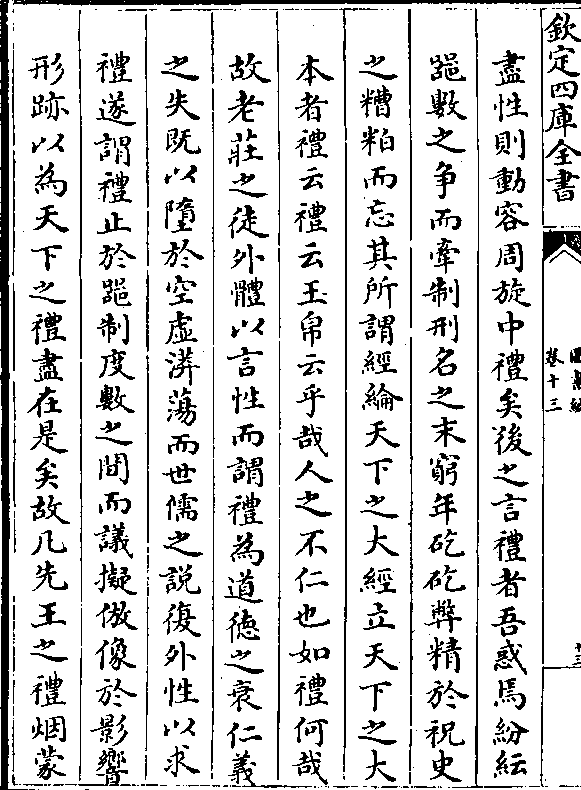 欽定四庫全書
卷十三
盡性則動容周旋中禮矣後之言禮者吾惑焉紛紜
噐數之爭而牽制刑名之末窮年矻矻弊精於祝史
之糟粕而忘其所謂經綸天下之大經立天下之大
本者禮云禮云玉帛云乎哉人之不仁也如禮何哉
故老莊之徒外體以言性而謂禮為道德之衰仁義
之失既以墮於空虛漭蕩而世儒之說復外性以求
禮遂謂禮止於噐制度數之間而議擬倣像於影響
形跡以為天下之禮盡在是矣故凡先王之禮烟蒙